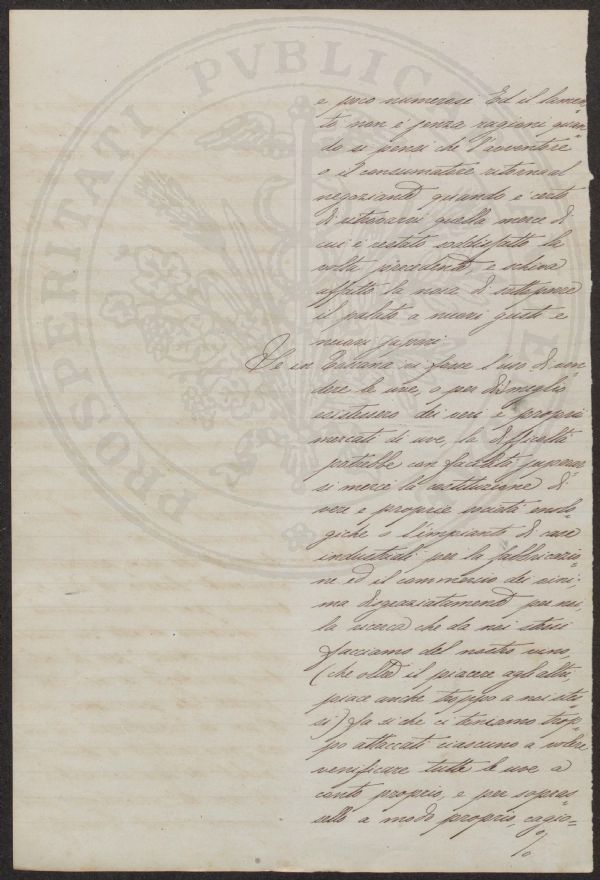 PROSPERITATI PVBLICAE
e poco numerose. Ed il lamen-
to non è senza ragioni quan-
do si pensi che l'avventore
o il consumatore ritorna al
negoziante quando è certo
di ritrovarvi quella merce di
cui è restato soddisfatto la
volta precedente, e schiva
affatto la noia di sottoporre
il palato a nuovi gusti e
nuovi sapori.
Se in Toscana vi fosse l'uso di ven-
dere le uve, o per dir meglio
esistessero dei veri e proprii
mercati di uve, la difficoltà
potrebbe con facilità superar-
si mercè la costituzione di
vere e proprie società enolo-
giche o l'impianto di case
industriali per la fabbricazio-
ne ed il commercio dei vini;
ma disgraziatamente per noi,
la ricerca che da noi stessi
facciamo del nostro vino,
(che oltre il piacere agli altri,
piace anche troppo a noi stes-
si) fa sì che ci teniamo trop-
po attaccati ciascuno a volere
venificare tutte le uve a
conto proprio, e per sopras-
sello a modo proprio, cagio-